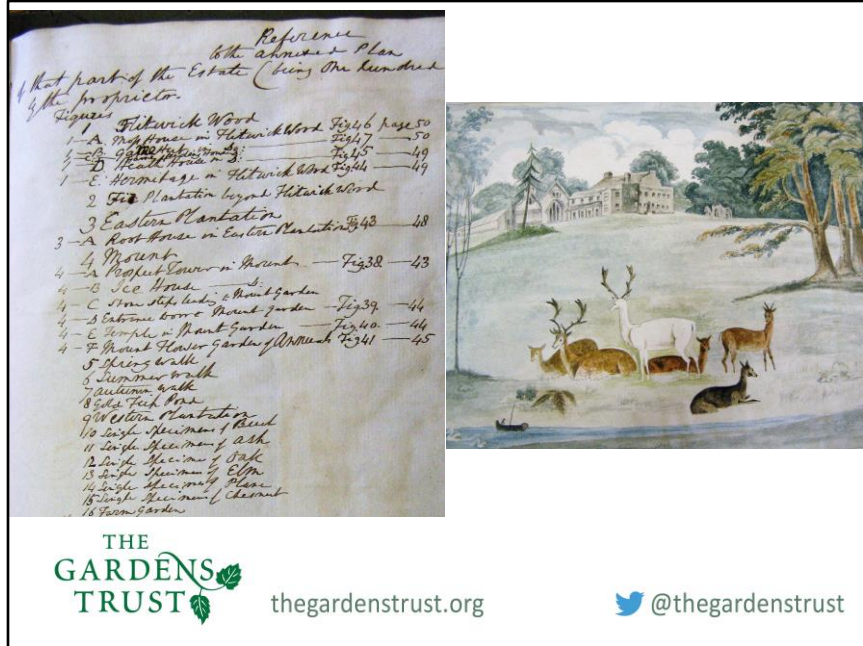 Reference
to the annexed Plan
of that part of the Estate (being One hundred
of the proprietor.
Figures
1 Flitwick Wood
1 — A. Moss House in Flitwick Wood Fig 46 page 50
Fig 47 — 50
D House in Do. Fig 45 — 49
1 — E. Hermitage in Flitwick Wood Fig 44 — 49
2 Fir Plantation beyond Flitwick Wood
3 Eastern Plantation
3 — A Root House in Eastern Plantation Fig 43 — 48
4 Mount
4 — A Prospect Tower in Mount — Fig 38. — 43
4 — B Ice House — Do.
4 — C Stone steps leading to Mount Garden
4 — D Entrance door to Mount Garden — Fig 39. — 44
4 — E Temple in Mount Garden — Fig 40. — 44
4 — F Mount Flower Garden of Annuals Fig 41 — 45
5 Spring Walk
6 Summer Walk
7 Autumn Walk
8 Gold Fish Pond
9 Western Plantation
10 Single Specimens of Beech
11 Single Specimens of Ash
12 Single Specimens of Oak
13 Single Specimens of Elm
14 Single Specimens of Plane
15 Single Specimens of Chesnut
16 Farm Garden
THE
GARDENS
TRUST
thegardenstrust.org
@thegardenstrust